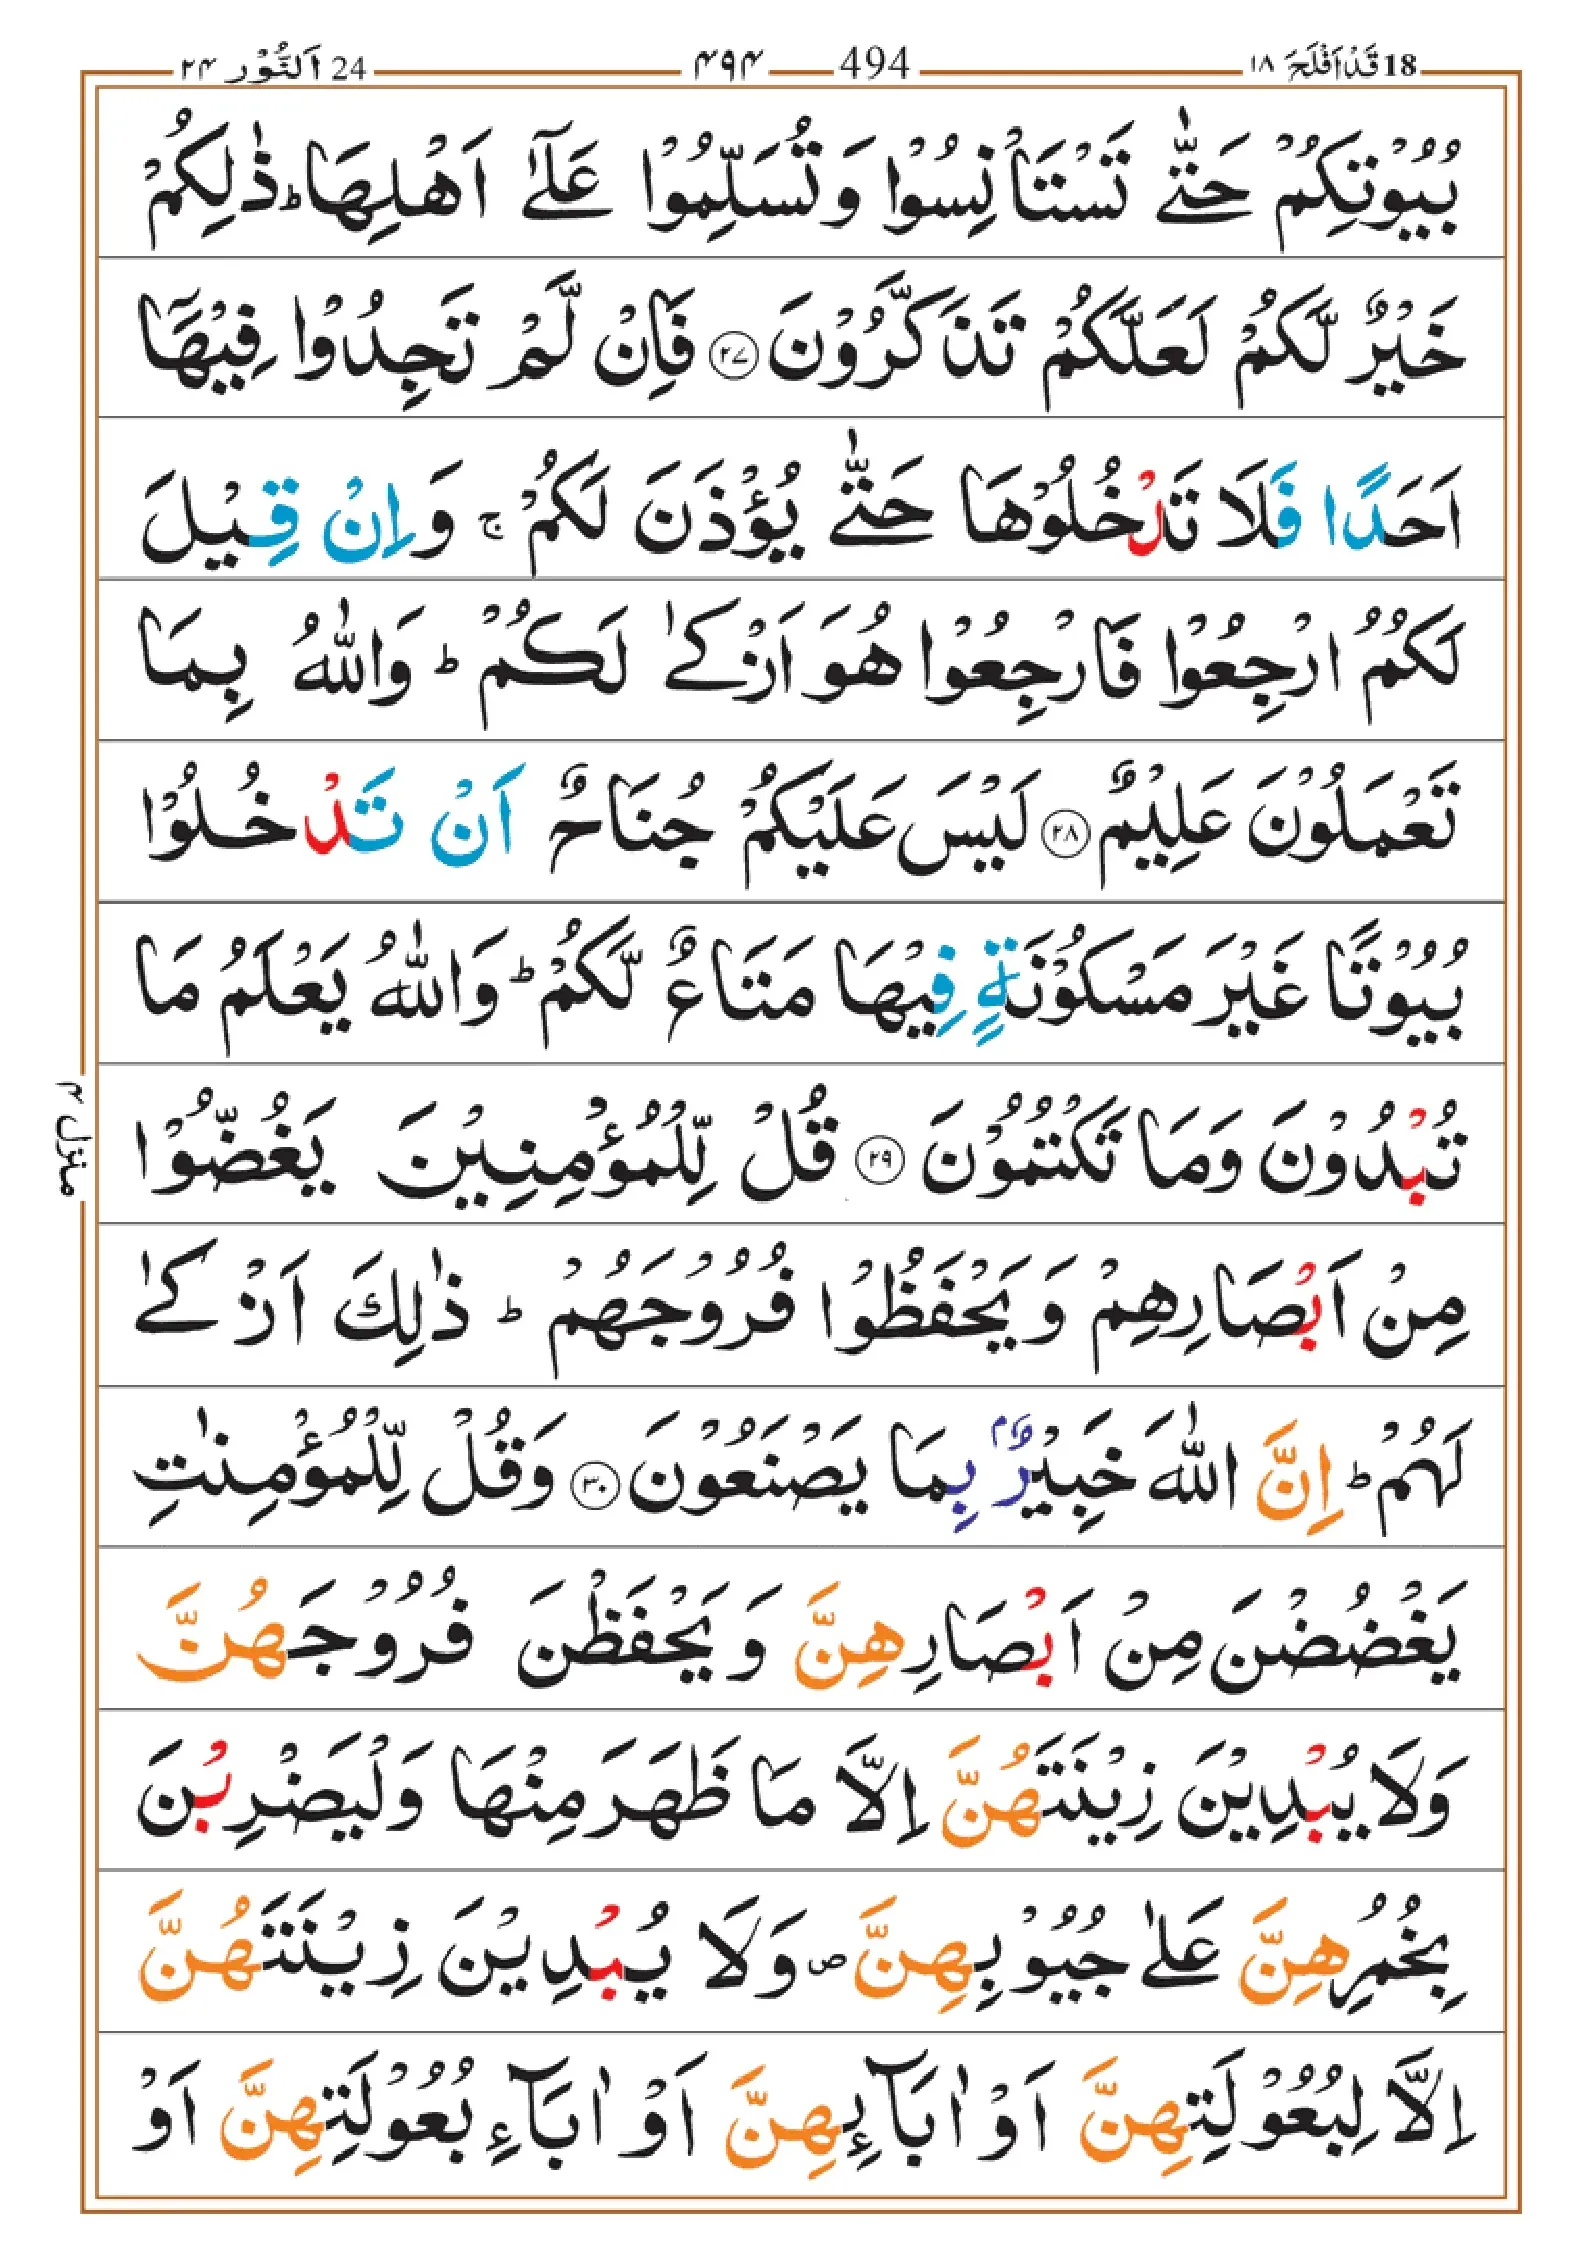 18 قَدْ اَفْلَحَ ١٨ 494 ۴۹۴ 24 اَلنُّوْر ۲۴
بُيُوْتِكُمْ حَتّٰى تَسْتَاْنِسُوْا وَتُسَلِّمُوْا عَلٰٓى اَهْلِهَا ؕ ذٰلِكُمْ
خَيْرٌ لَّكُمْ لَعَلَّكُمْ تَذَكَّرُوْنَ ۲۷ فَاِنْ لَّمْ تَجِدُوْا فِيْهَاۤ
اَحَدًا فَلَا تَدْخُلُوْهَا حَتّٰى يُؤْذَنَ لَكُمْ ۚ وَاِنْ قِيْلَ
لَكُمُ ارْجِعُوْا فَارْجِعُوْا هُوَ اَزْكٰى لَكُمْ ؕ وَاللّٰهُ بِمَا
تَعْمَلُوْنَ عَلِيْمٌ ۲۸ لَيْسَ عَلَيْكُمْ جُنَاحٌ اَنْ تَدْخُلُوْا
بُيُوْتًا غَيْرَ مَسْكُوْنَةٍ فِيْهَا مَتَاعٌ لَّكُمْ ؕ وَاللّٰهُ يَعْلَمُ مَا
تُبْدُوْنَ وَمَا تَكْتُمُوْنَ ۲۹ قُلْ لِّلْمُؤْمِنِيْنَ يَغُضُّوْا
مِنْ اَبْصَارِهِمْ وَيَحْفَظُوْا فُرُوْجَهُمْ ؕ ذٰلِكَ اَزْكٰى
لَهُمْ ؕ اِنَّ اللّٰهَ خَبِيْرٌۢ بِمَا يَصْنَعُوْنَ ۳۰ وَقُلْ لِّلْمُؤْمِنٰتِ
يَغْضُضْنَ مِنْ اَبْصَارِهِنَّ وَيَحْفَظْنَ فُرُوْجَهُنَّ
وَلَا يُبْدِيْنَ زِيْنَتَهُنَّ اِلَّا مَا ظَهَرَ مِنْهَا وَلْيَضْرِبْنَ
بِخُمُرِهِنَّ عَلٰى جُيُوْبِهِنَّ ۪ وَلَا يُبْدِيْنَ زِيْنَتَهُنَّ
اِلَّا لِبُعُوْلَتِهِنَّ اَوْ اٰبَآئِهِنَّ اَوْ اٰبَآءِ بُعُوْلَتِهِنَّ اَوْ
منزل ۴